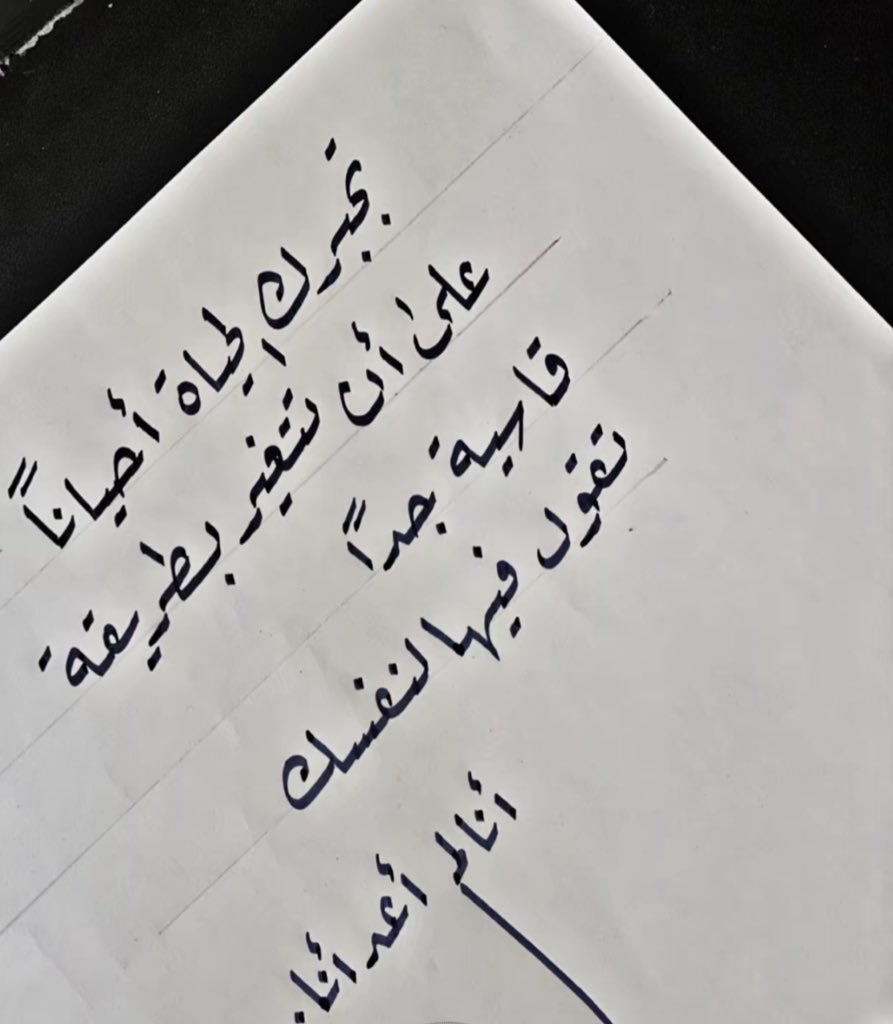 تجبرك الحياة أحياناً
على أن تتغير بطريقة
قاسية جداً
تقول فيها لنفسك
أنا لم أعد أنا.